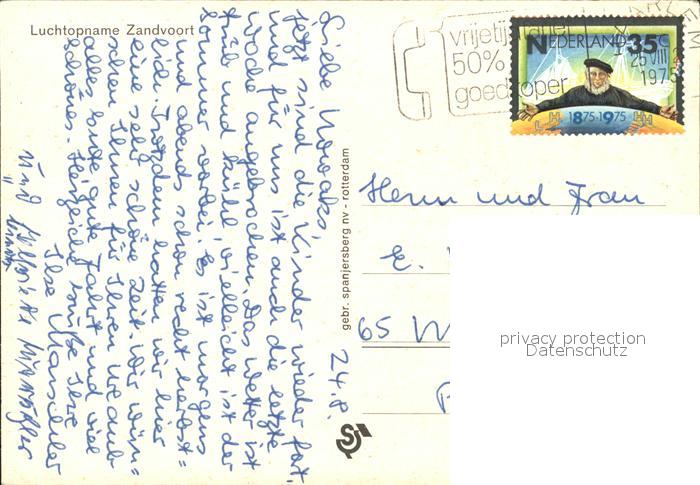 Luchtopname Zandvoort
vrijetijd
50%
goedkoper
NEDERLAND 35C
25 VIII
1975
1875-1975
L H H H
Liebe Nowaks,
jetzt sind die Kinder wieder fort
und für uns ist auch die letzte
Woche angebrochen. Das Wetter ist
trüb und kühl, vielleicht ist der
Sommer vorbei. Es ist morgens
und abends schon recht herbst=
lich. Trotzdem hatten wir hier
eine sehr schöne Zeit. Wir wün=
schen Ihnen für Ihren Urlaub
alles Gute, gute Fahrt und viel
schönes. Herzliche Grüße Ihre
Ilse Marschler
und
24.8.
gebr. spanjersberg nv - rotterdam
Herrn und Frau
E.
65
privacy protection
Datenschutz